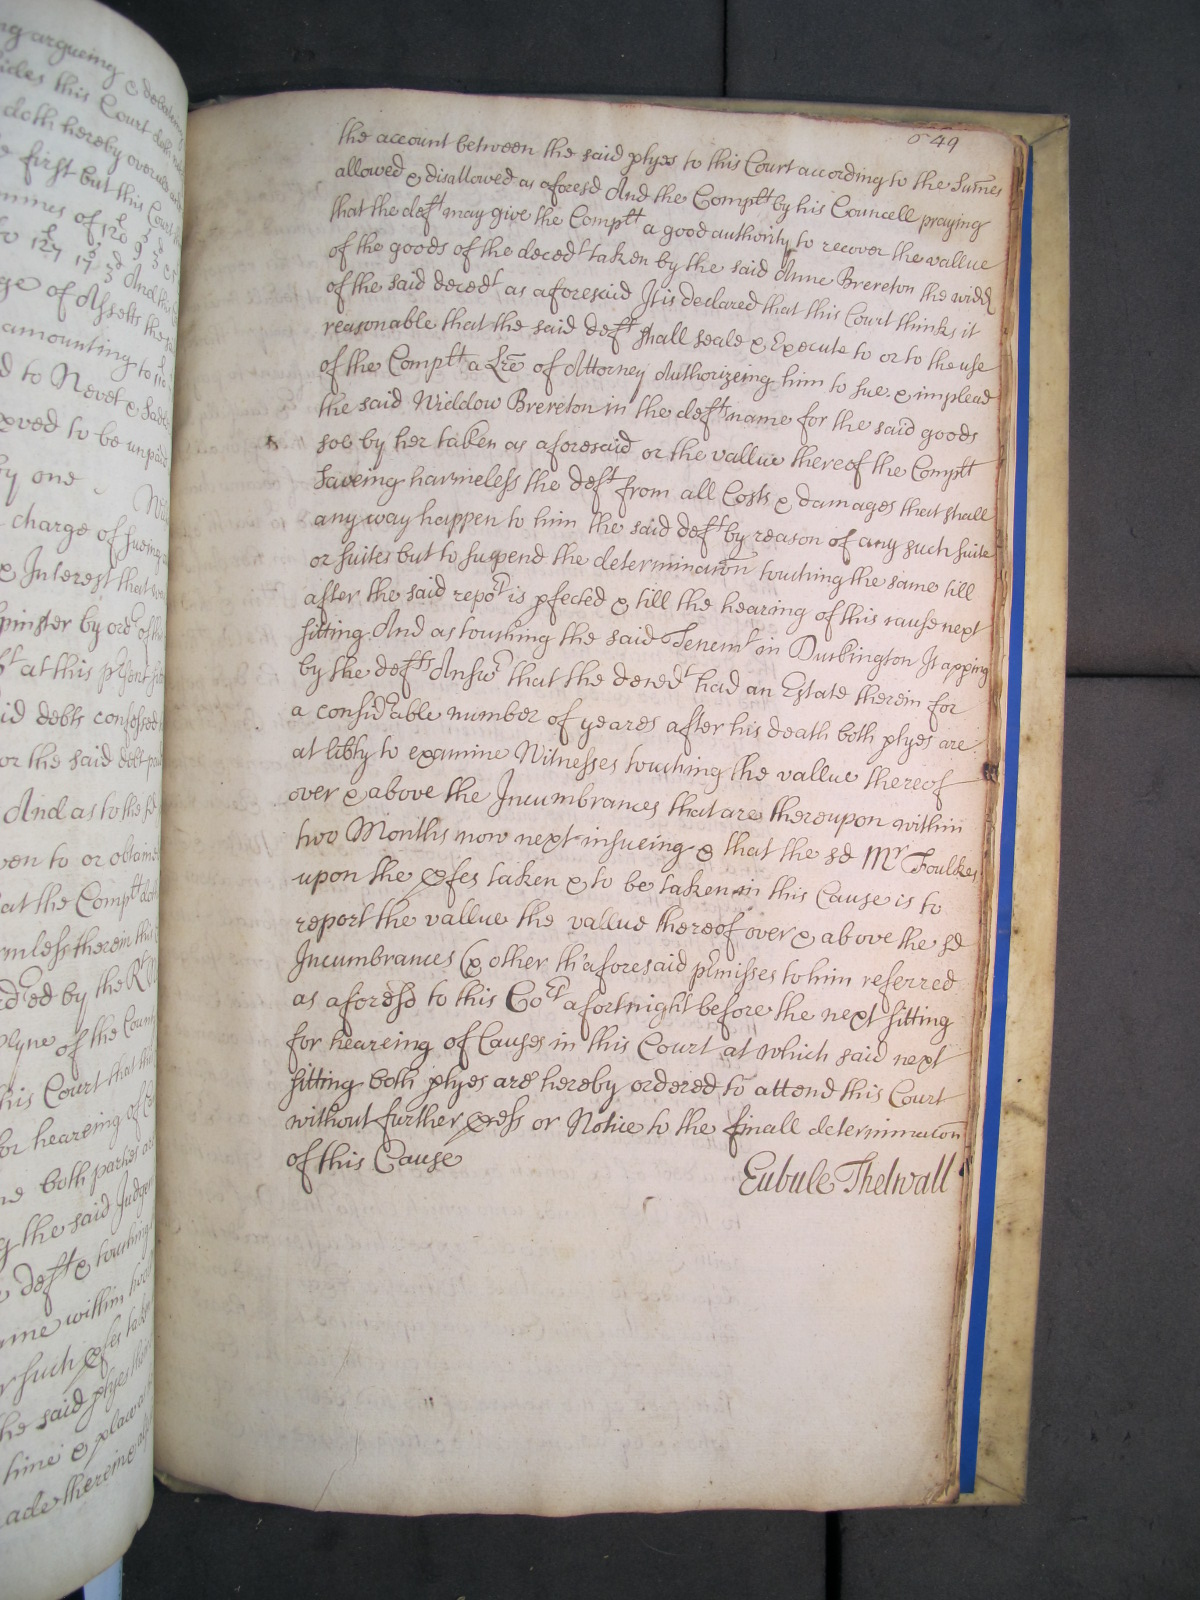 ng argueing & debateing
sides this Court doth
doth hereby overrule
first but this Court
mmes of 120 9 3
to 127 17 3 And
ge of Assetts the
amounting to
d to Nevet &
oved to be unpaid
by one
charge of sueing
& Interest that
spinster by ord of the
at this psent
id debts confessed
or the said debt
And as to the sd
ven to or obtaine
at the Complt doth
rmless therein this
ed by the Rt
plyne of the Count
his Court that
for heareing of
ne both parties are
g the said Judge
deft & touching
ame within two
r such
he said ptyes
time & place
ade thereine
649
the account between the said ptyes to this Court according to the Sumes
allowed & disallowed as aforesd And the Complt by his Councell praying
that the deft may give the Complt a good authority to recover the vallue
of the goods of the decedt taken by the said Anne Brereton the widd
of the said decedt as aforesaid It is declared that this Court thinks it
reasonable that the said deft shall seale & Execute to or to the use
of the Complt a Lre of Attorney Authorizeing him to sue & implead
the said Widdow Brereton in the defts name for the said goods
soe by her taken as aforesaid or the vallue thereof the Complt
Saveing harmeless the deft from all Costs & damages that shall
any way happen to him the said deft by reason of any such suite
or suites but to suspend the determinacon touching the same till
after the said report is pfected & till the hearing of this cause next
sitting And as touching the said Tenemt in Durbington It apping
by the defts Answr that the decedt had an Estate therein for
a considrable number of yeares after his death both ptyes are
at libty to examine Witnesses touching the vallue thereof
over & above the Incumbrances that are thereupon within
two Months now next insueing & that the sd Mr Foulkes
upon the pfes taken & to be taken in this Cause is to
report the vallue the vallue thereof over & above the sd
Incumbrances & other th'aforesaid pmisses to him referred
as aforesd to this Cort a fortnight before the next sitting
for heareing of Causes in this Court at which said next
sitting both ptyes are hereby ordered to attend this Court
without further pcess or Notice to the finall determinacon
of this Cause
Eubule Thelwall